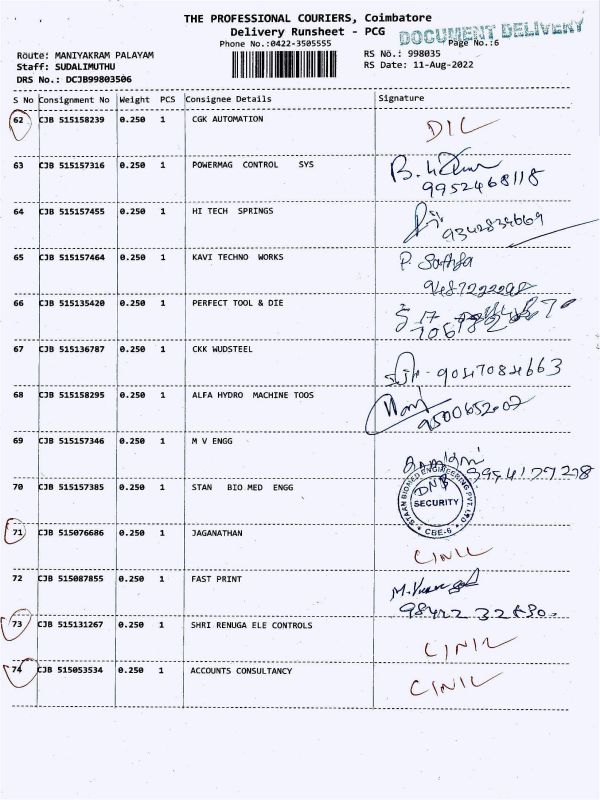 THE PROFESSIONAL COURIERS, Coimbatore
Delivery Runsheet - PCG
DOCUMENT DELIVERY
Phone No.:0422-3505555
Page No.:6
Route: MANIYAKRAM PALAYAM
RS No.: 998035
Staff: SUDALIMUTHU
RS Date: 11-Aug-2022
DRS No.: DCJB99803506
S No Consignment No Weight PCS Consignee Details Signature
62 CJB 515158239 0.250 1 CGK AUTOMATION
DIL
63 CJB 515157316 0.250 1 POWERMAG CONTROL SYS
9952468118
64 CJB 515157455 0.250 1 HI TECH SPRINGS
9342834669
65 CJB 515157464 0.250 1 KAVI TECHNO WORKS
P. Sathya
66 CJB 515135420 0.250 1 PERFECT TOOL & DIE
67 CJB 515136787 0.250 1 CKK WUDSTEEL
68 CJB 515158295 0.250 1 ALFA HYDRO MACHINE TOOS
9500652007
69 CJB 515157346 0.250 1 M V ENGG
70 CJB 515157385 0.250 1 STAN BIO MED ENGG
STAAN BIOMED ENGINEERING PVT LTD
DNB
SECURITY
CBE-6
71 CJB 515076686 0.250 1 JAGANATHAN
CINIL
72 CJB 515087855 0.250 1 FAST PRINT
73 CJB 515131267 0.250 1 SHRI RENUGA ELE CONTROLS
CINIL
74 CJB 515053534 0.250 1 ACCOUNTS CONSULTANCY
CINIL